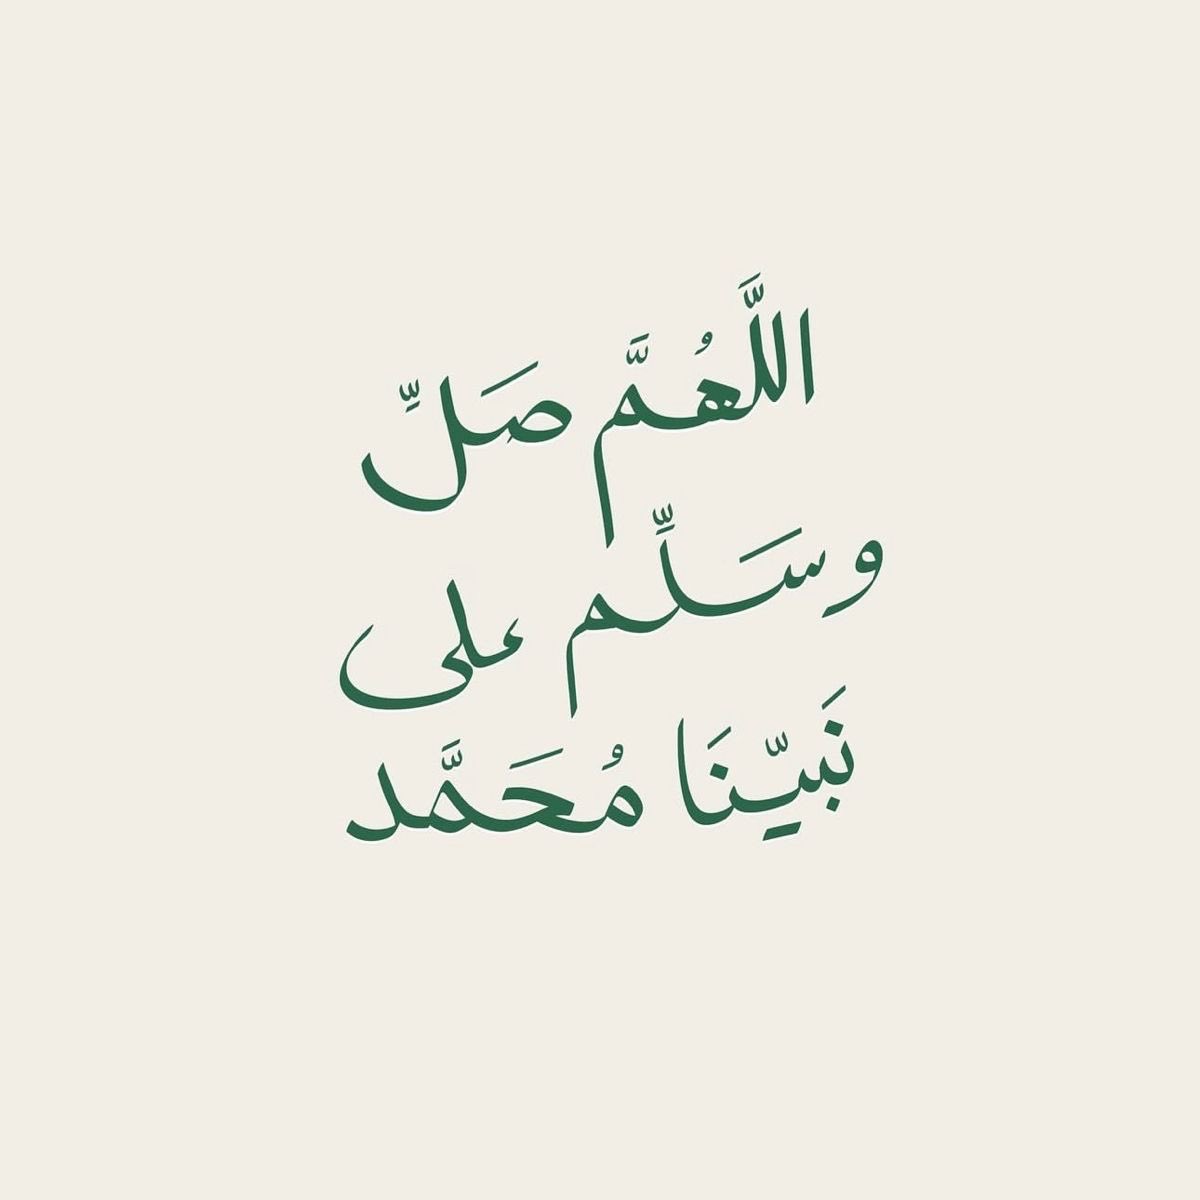 اللَّهُمَّ صَلِّ
وسَلِّم على
نَبيِّنَا مُحَمَّد